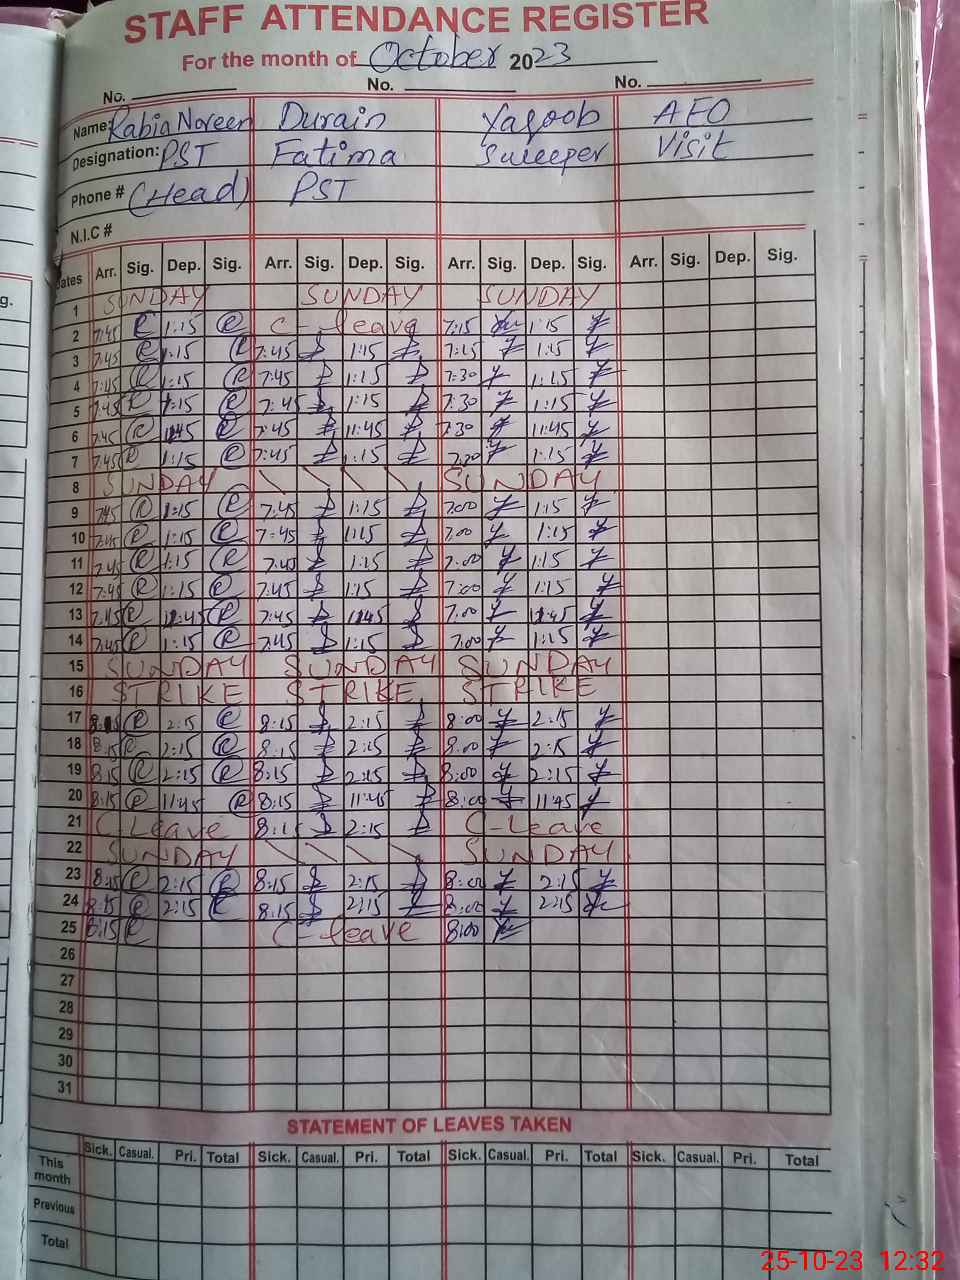 STAFF ATTENDANCE REGISTER
For the month of October 2023
No. No. No.
Name: Rabia Noreen Durain Yaqoob AEO
Designation: PST Fatima Sweeper Visit
Phone # (Head) PST
N.I.C #
g. Dates Arr. Sig. Dep. Sig. Arr. Sig. Dep. Sig. Arr. Sig. Dep. Sig. Arr. Sig. Dep. Sig.
1 SUNDAY SUNDAY SUNDAY
2 7:45 R 1:15 R C-leave 7:15 1:15
3 7:45 R 1:15 R 7:45 1:15 7:15 1:15
4 7:45 R 1:15 R 7:45 1:15 7:30 1:15
5 7:45 R 1:15 R 7:45 1:15 7:30 1:15
6 7:45 R 11:45 R 7:45 11:45 7:30 11:45
7 7:45 R 1:15 R 7:45 1:15 7:30 1:15
8 SUNDAY SUNDAY
9 7:45 R 1:15 R 7:45 1:15 7:00 1:15
10 7:45 R 1:15 R 7:45 1:15 7:00 1:15
11 7:45 R 1:15 R 7:45 1:15 7:00 1:15
12 7:45 R 1:15 R 7:45 1:15 7:00 1:15
13 7:45 R 11:45 R 7:45 11:45 7:00 11:45
14 7:45 R 1:15 R 7:45 1:15 7:00 1:15
15 SUNDAY SUNDAY SUNDAY
16 STRIKE STRIKE STRIKE
17 8:15 R 2:15 R 8:15 2:15 8:00 2:15
18 8:15 R 2:15 R 8:15 2:15 8:00 2:15
19 8:15 R 2:15 R 8:15 2:15 8:00 2:15
20 8:15 R 11:45 R 8:15 11:45 8:00 11:45
21 C-Leave 8:15 2:15 C-Leave
22 SUNDAY SUNDAY
23 8:15 R 2:15 R 8:15 2:15 8:00 2:15
24 8:15 R 2:15 R 8:15 2:15 8:00 2:15
25 8:15 R C-leave 8:00
26
27
28
29
30
31
STATEMENT OF LEAVES TAKEN
Sick. Casual. Pri. Total Sick. Casual. Pri. Total Sick. Casual. Pri. Total Sick. Casual. Pri. Total
This month
Previous
Total
25-10-23 12:32